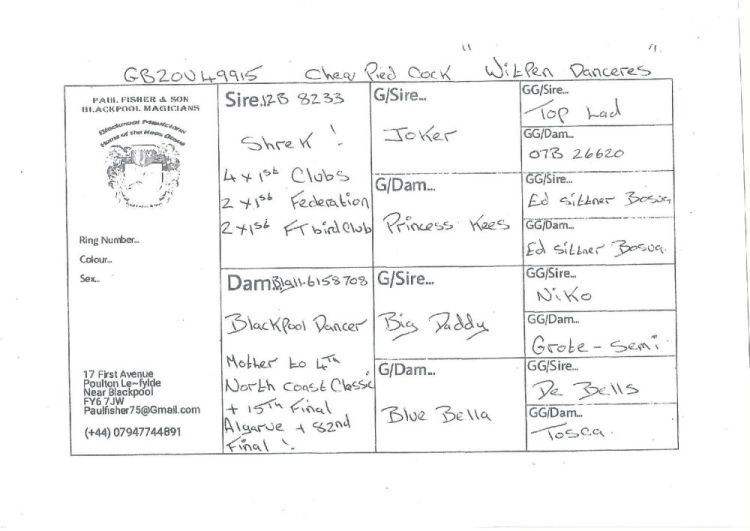 GB20U49915 Cheq Pied Cock "Witpen Danceres"
PAUL FISHER & SON
BLACKPOOL MAGICIANS
Blackpool Magicians
Home of the Kees Bosua
Ring Number...
Colour...
Sex...
17 First Avenue
Poulton Le~fylde
Near Blackpool
FY6 7JW
Paulfisher75@Gmail.com
(+44) 07947744891
Sire... 12B 8233
Shrek !
4 x 1st Clubs
2 x 1st Federation
2 x 1st FT bird Club
Dam Blg11-6158708
Blackpool Dancer
Mother to 4TH
North Coast Classic
+ 15TH Final
Algarve + 82nd
Final !
G/Sire...
Joker
G/Dam...
Princess Kees
G/Sire...
Big Daddy
G/Dam...
Blue Bella
GG/Sire...
Top Lad
GG/Dam...
07B 26620
GG/Sire...
Ed Sittner Bosua
GG/Dam...
Ed Sittner Bosua.
GG/Sire...
Niko
GG/Dam...
Grote - Semi
GG/Sire...
De Bells
GG/Dam...
Tosca.